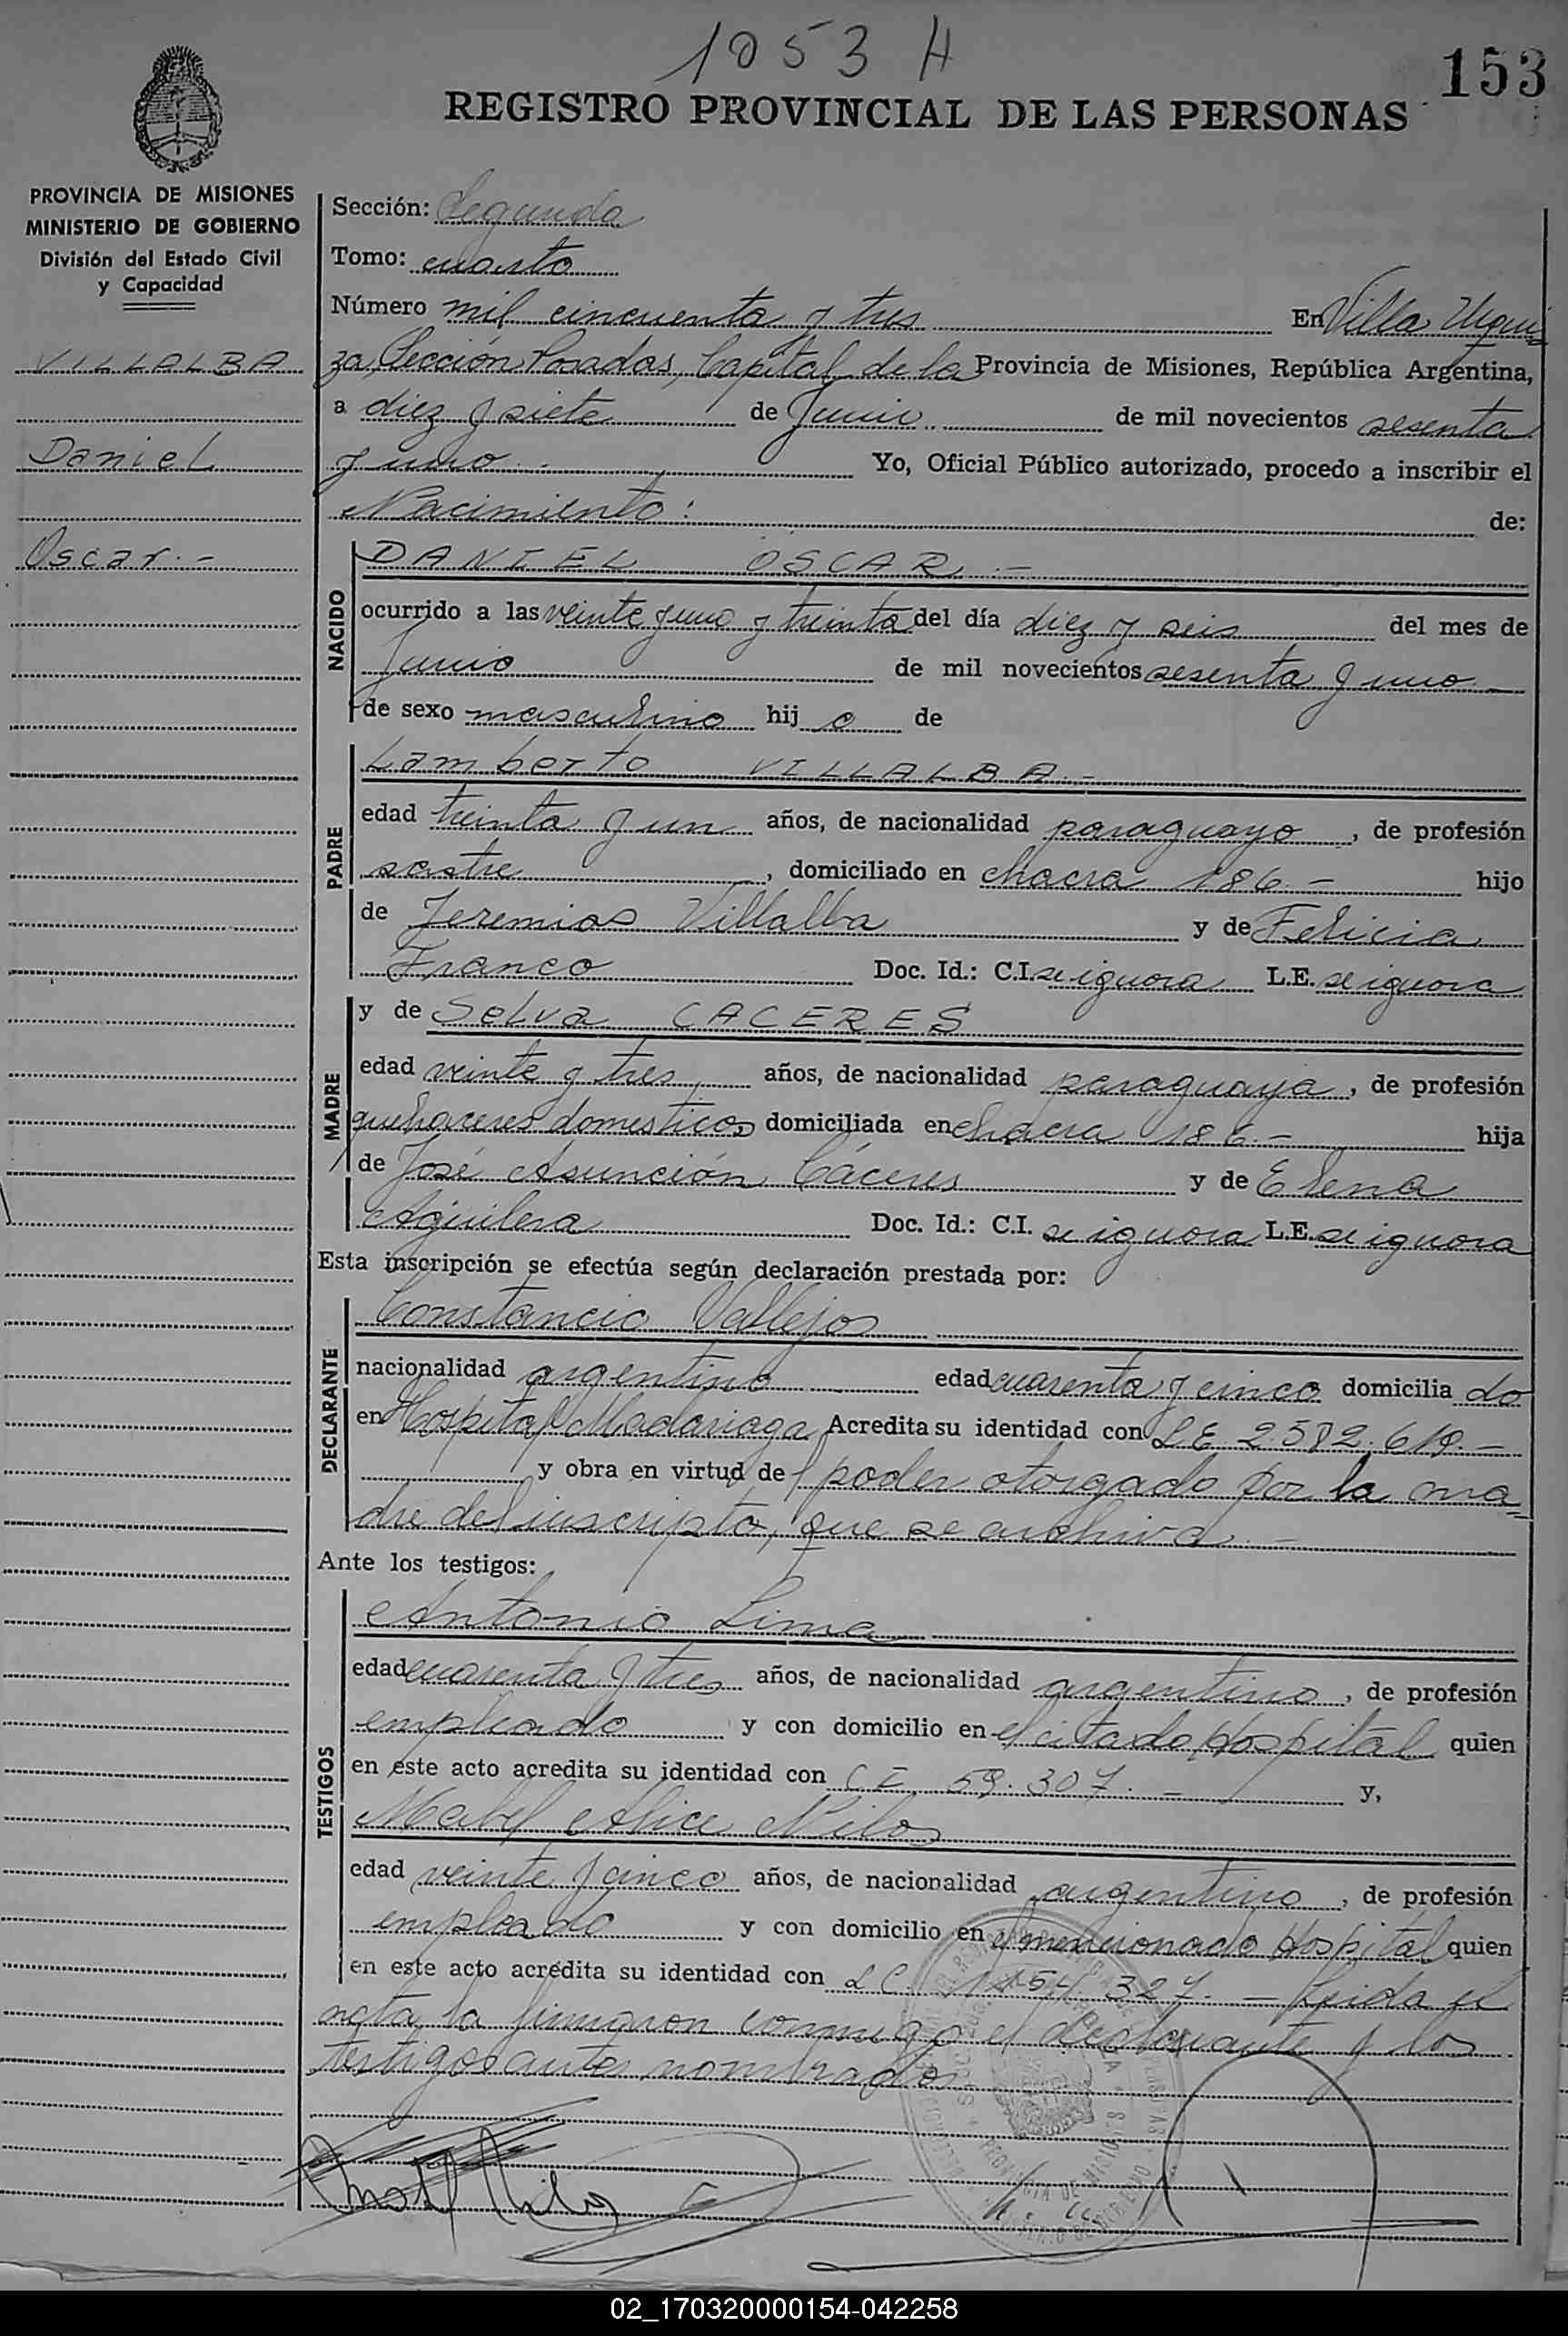 1053 H
153
REGISTRO PROVINCIAL DE LAS PERSONAS
PROVINCIA DE MISIONES
MINISTERIO DE GOBIERNO
División del Estado Civil
y Capacidad
VILLALBA
Daniel
Oscar.-
Sección: Segunda
Tomo: cuarto
Número mil cincuenta y tres En Villa Urqui=
za, Sección Posadas, Capital de la Provincia de Misiones, República Argentina,
a diez y siete de Junio de mil novecientos sesenta
y uno.- Yo, Oficial Público autorizado, procedo a inscribir el
Nacimiento: de:
NACIDO
DANIEL OSCAR.-
ocurrido a las veinte y uno y treinta del día diez y seis del mes de
Junio de mil novecientos sesenta y uno
de sexo masculino hij o de
PADRE
Lamberto VILLALBA.-
edad treinta y un años, de nacionalidad paraguayo, de profesión
sastre, domiciliado en chacra 186.- hijo
de Jeremias Villalba y de Felicia
Franco Doc. Id.: C.I. se ignora L.E. se ignora
MADRE
y de Selva CACERES
edad veinte y tres años, de nacionalidad paraguaya, de profesión
quehaceres domesticos domiciliada en chacra 186.- hija
de José Asunción Cáceres y de Elena
Aguilera Doc. Id.: C.I. se ignora L.E. se ignora
Esta inscripción se efectúa según declaración prestada por:
DECLARANTE
Constancio Vallejos
nacionalidad argentino edad cuarenta y cinco domicilia do
en Hospital Madariaga Acredita su identidad con L E
y obra en virtud del poder otorgado por la ma=
dre del inscripto, que se archiva.-
Ante los testigos:
TESTIGOS
Antonio Lima
edad cuarenta y tres años, de nacionalidad argentino, de profesión
empleado y con domicilio en el citado Hospital quien
en este acto acredita su identidad con C I 59.307.- y,
Mabel Alice Nilos
edad veinte y cinco años, de nacionalidad argentino, de profesión
empleado y con domicilio en el mencionado Hospital quien
en este acto acredita su identidad con L C 327.- Leida el
acta, la firmaron conmigo el declarante y los
testigos antes nombrados
02_170320000154-042258